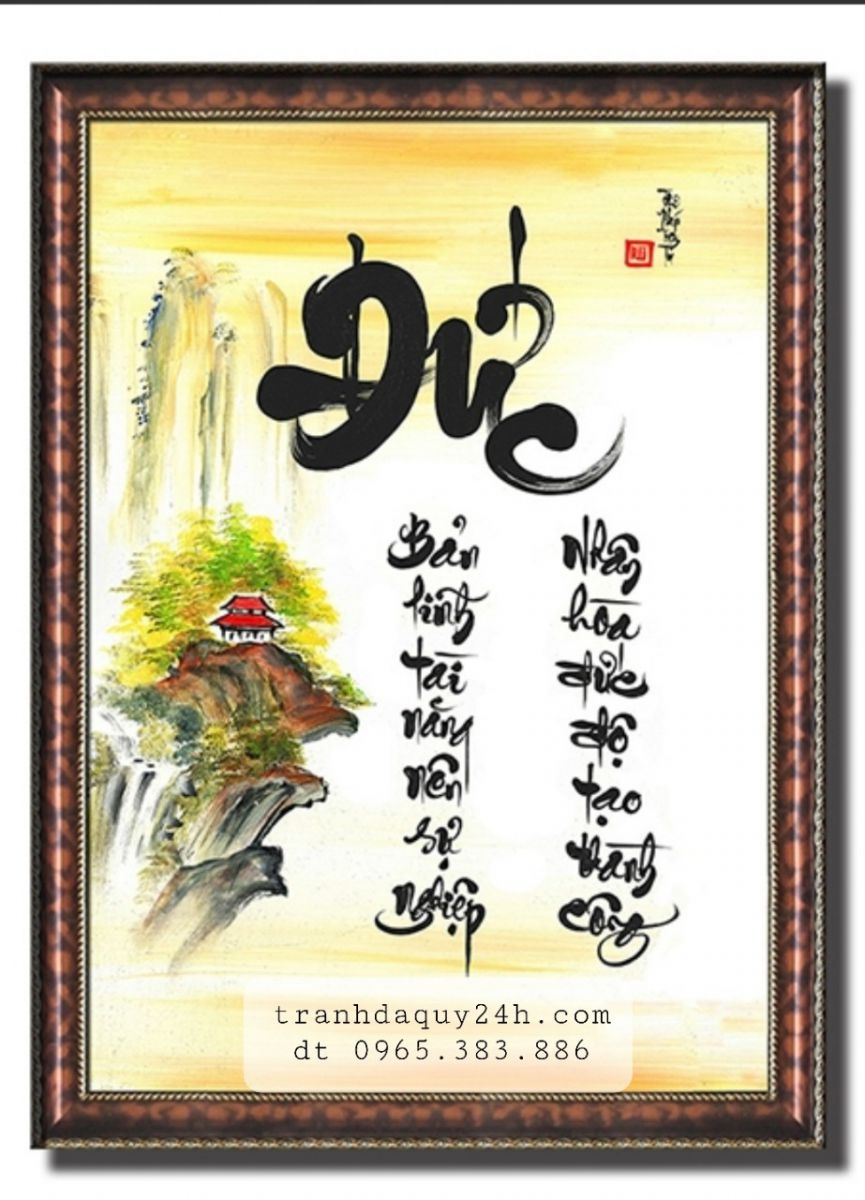 Đức
Bản
lĩnh
tài
năng
nên
sự
nghiệp
Nhân
hòa
đức
độ
tạo
thành
công
tranhdaquy24h.com
dt 0965.383.886